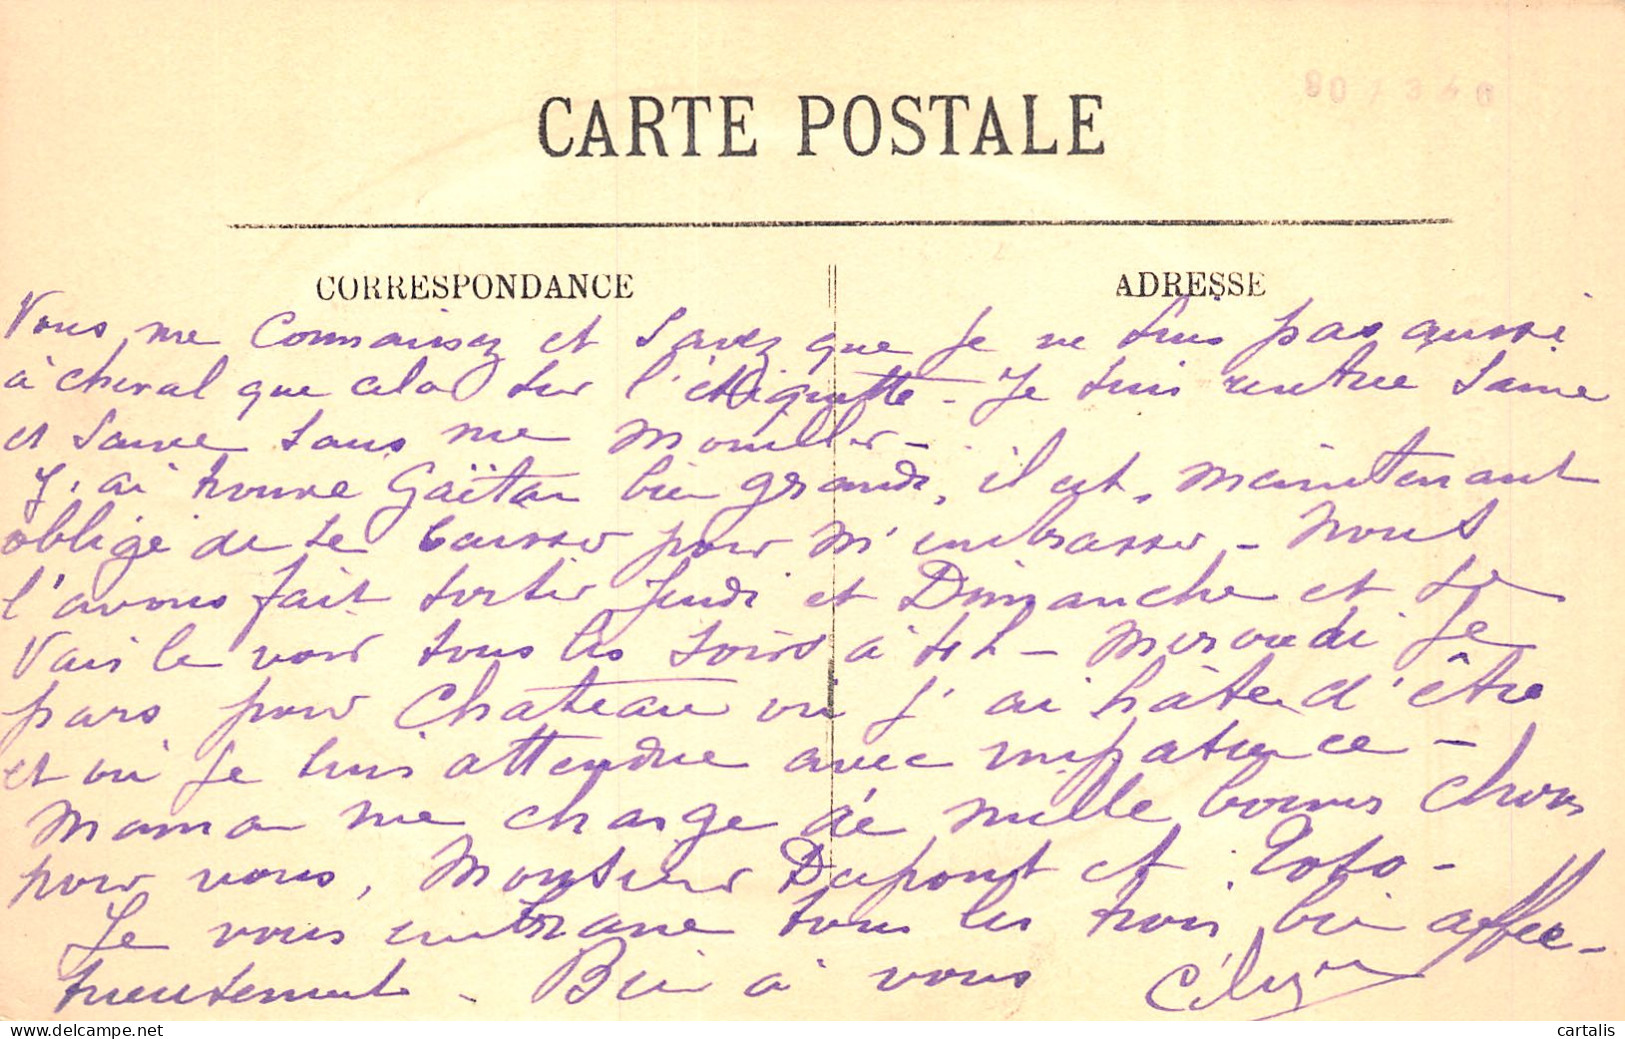 90 / 3 4 6
CARTE POSTALE
CORRESPONDANCE
ADRESSE
Vous me connaissez et savez que je ne suis pas aussi
à cheval que cela sur l'étiquette - Je suis rentrée saine
et sauve sans me mouiller -
J'ai trouvé Gaëtan bien grandi, il est maintenant
obligé de se baisser pour m'embrasser - Nous
l'avons fait sortir Jeudi et Dimanche et je
vais le voir tous les soirs à - Mercredi je
pars pour Chateau où j'ai hâte d'être
et où je suis attendue avec impatience -
Maman me charge de mille bonnes choses
pour vous, Monsieur Dupont et Toto -
Je vous embrasse tous les trois bien affec-
tueusement - Bien à vous
cartalis